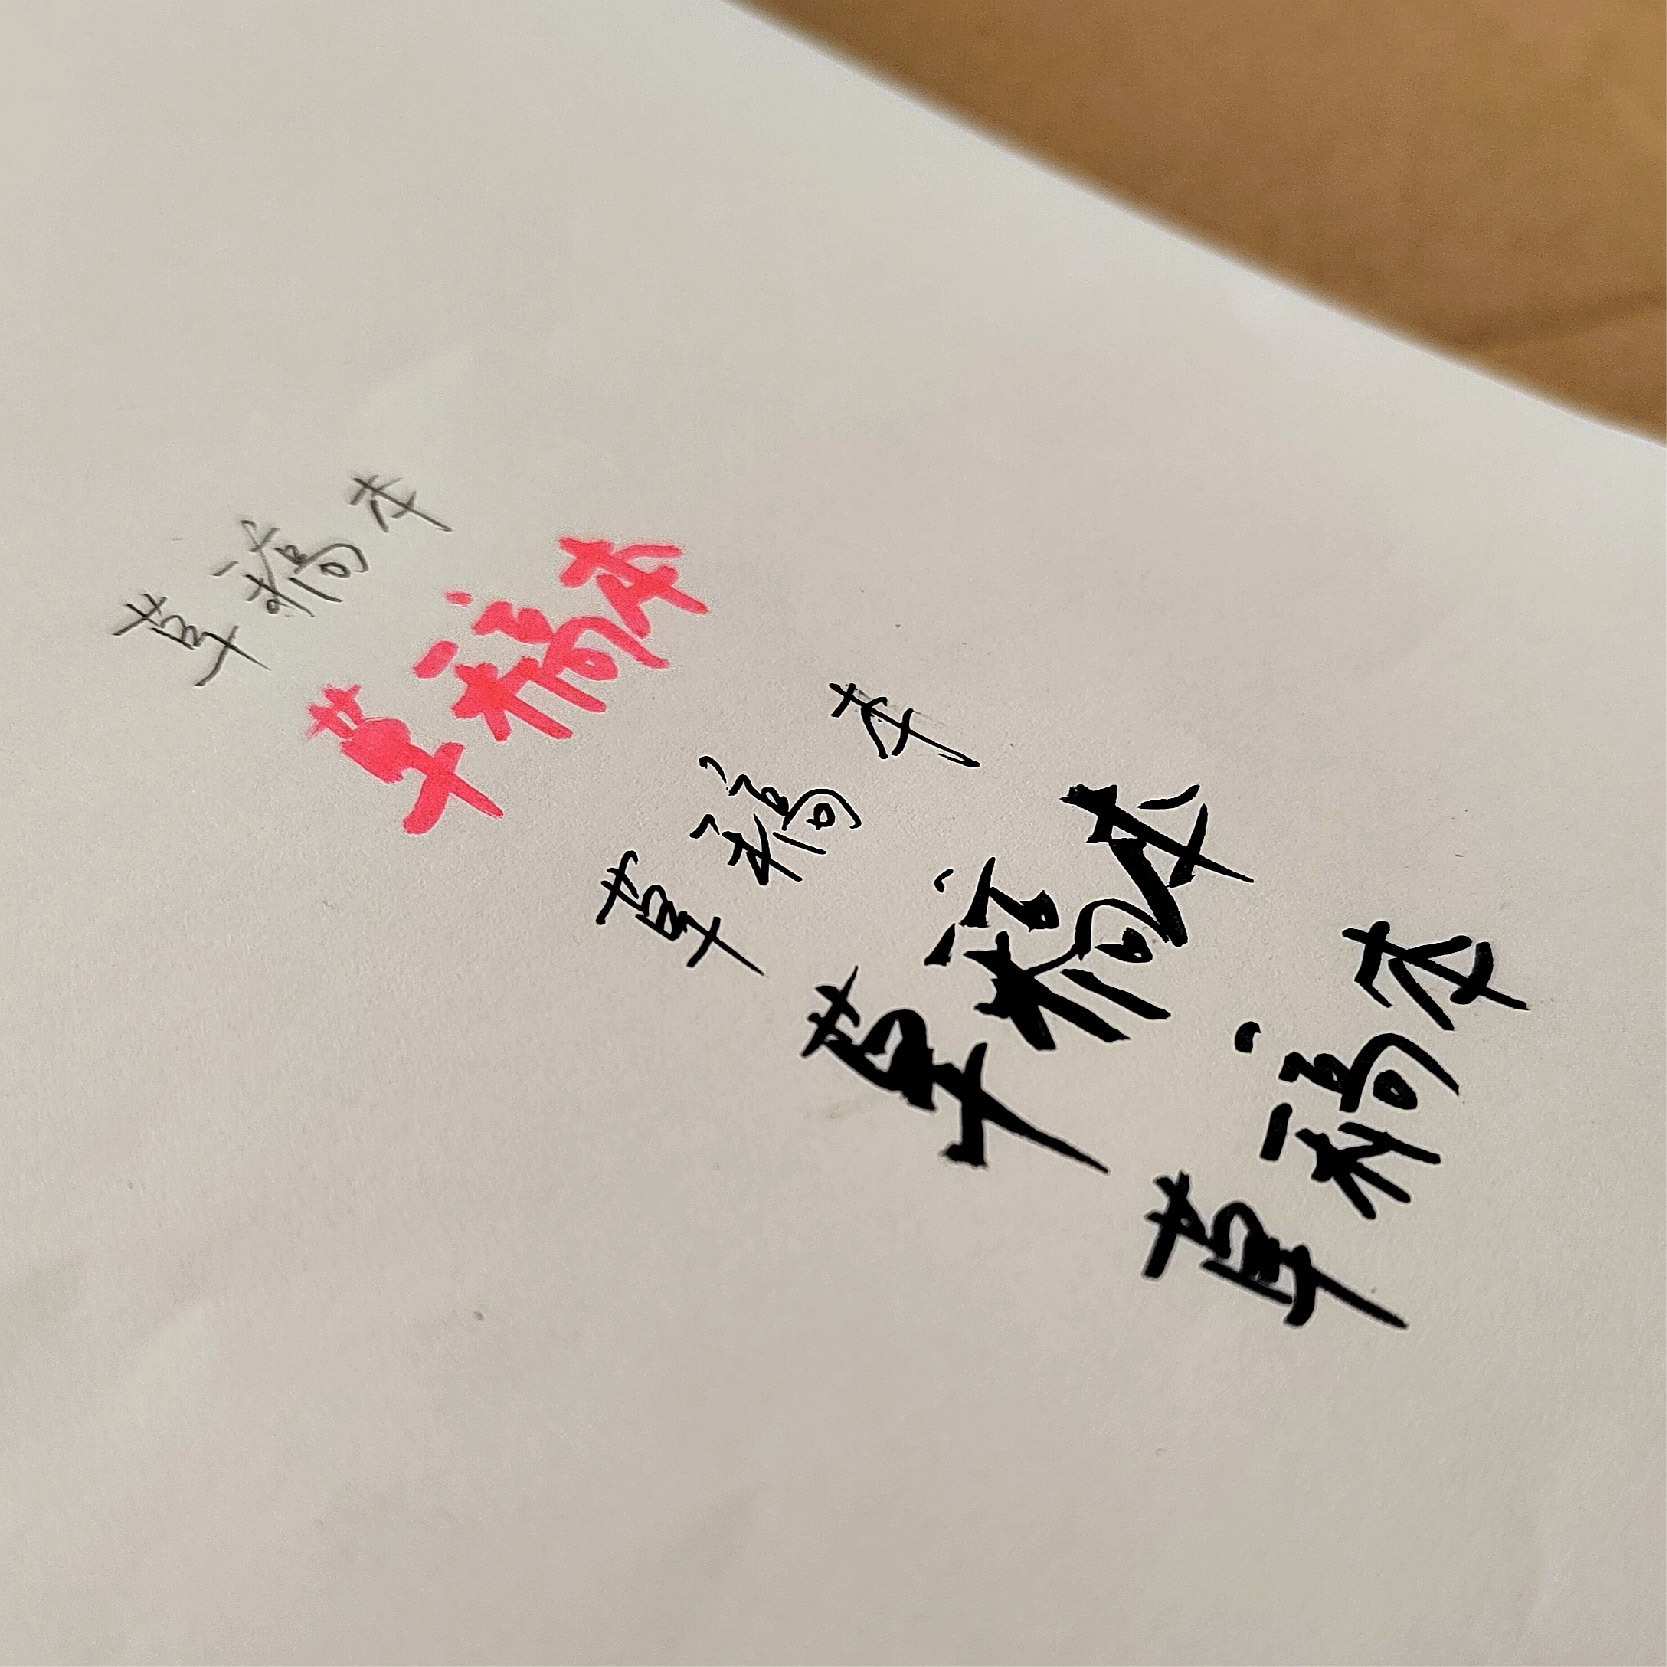 草稿本
草稿本
草稿本
草稿本
草稿本